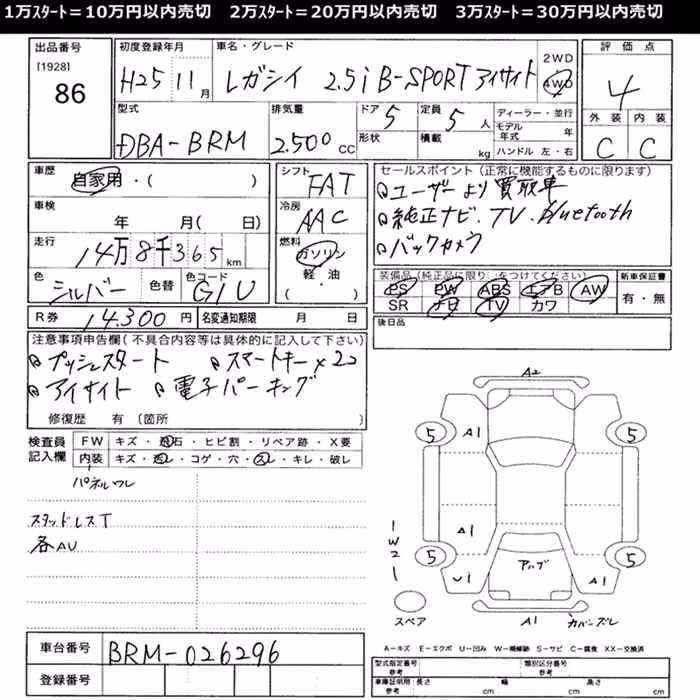 1万ｽﾀｰﾄ＝10万円以内売切　2万ｽﾀｰﾄ＝20万円以内売切　3万ｽﾀｰﾄ＝30万円以内売切
出品番号 [1928] 86
初度登録年月 H25 11月
車名・グレード レガシイ 2.5i B-SPORT アイサイト
2WD 4WD
評価点 4
外装 C 内装 C
型式 DBA-BRM
排気量 2.500 CC
ドア 5 形状
定員 5 人 積載 kg
ディーラー・並行
モデル年式 年
ハンドル 左・右
車歴 自家用・( )
車検 年 月( 日)
走行 14万8千365 km
色 シルバー 色替 色コード G1U
シフト FAT
冷房 AAC
燃料 ガソリン 軽・油 ・( )
セールスポイント(正常に機能するものに限ります)
ユーザーより買取車
純正ナビ.TV.Bluetooth
バックカメラ
装備品(純正品に限り○をつけてください)
PS PW ABS エアB AW
SR ナビ TV カワ
新車保証書 有・無
R券 14.300円 名変通知期限 月 日
後日品
注意事項申告欄(不具合内容等は具体的に記入して下さい)
プッシュスタート スマートキー×2コ
アイサイト 電子パーキング
修復歴 有 (箇所 )
検査員記入欄
FW キズ・飛石・ヒビ割・リペア跡・X要
内装 キズ・汚レ・コゲ・穴・スレ・キレ・破レ
パネルワレ
スタッドレスT
各AU
A2
5 A1 5
A1
5 5
1W21
U1 アルブ A1
スペア A1 カバーズレ
A－キズ E－エクボ U－凹み W－補修跡 S－サビ C－腐食 XX－交換済
車台番号 BRM-026296
登録番号
型式指定番号 参考 類別区分番号 参考
車庫証明用 参考 長さ cm 幅 cm 高さ cm